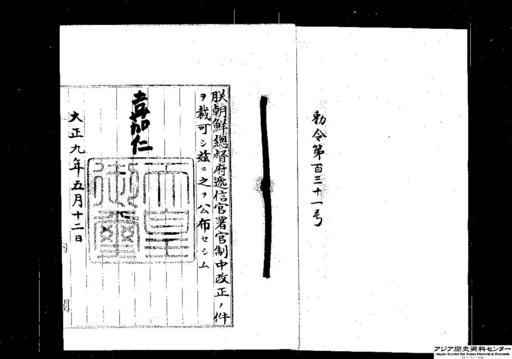 勅令第百三十一号
朕朝鮮總督府遞信官署官制中改正ノ件
ヲ裁可シ茲ニ之ヲ公布セシム
嘉仁
天皇御璽
大正九年五月十二日
内閣
アジア歴史資料センター
Japan Center for Asian Historical Records